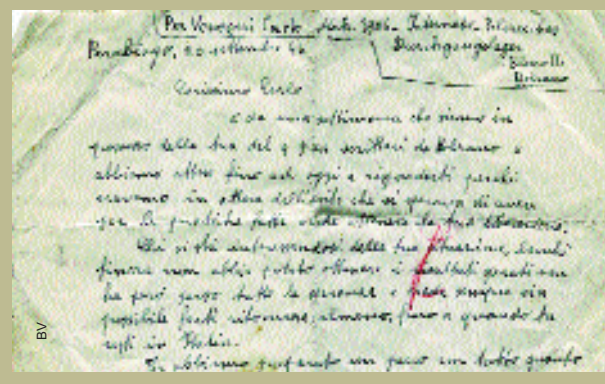 Per Venegoni Carlo
Durchgangslager
Bolzano
Parabiago, 20 settembre 44
Carissimo Carlo
è da una settimana che siamo in
possesso della tua del 9 scritta da Bolzano e
abbiamo atteso fino ad oggi a risponderti perché
eravamo in attesa dell'esito che si sperava di avere
per le pratiche fatte onde ottenere la tua liberazione.
Chi si sta interessando della tua situazione, benché
finora non abbia potuto ottenere i risultati sperati non
ha però perso tutte le speranze e pensa sempre sia
possibile farti ritornare, almeno, fino a quando tu
resti in Italia.
Ti abbiamo preparato un pacco con tutto quanto
BV